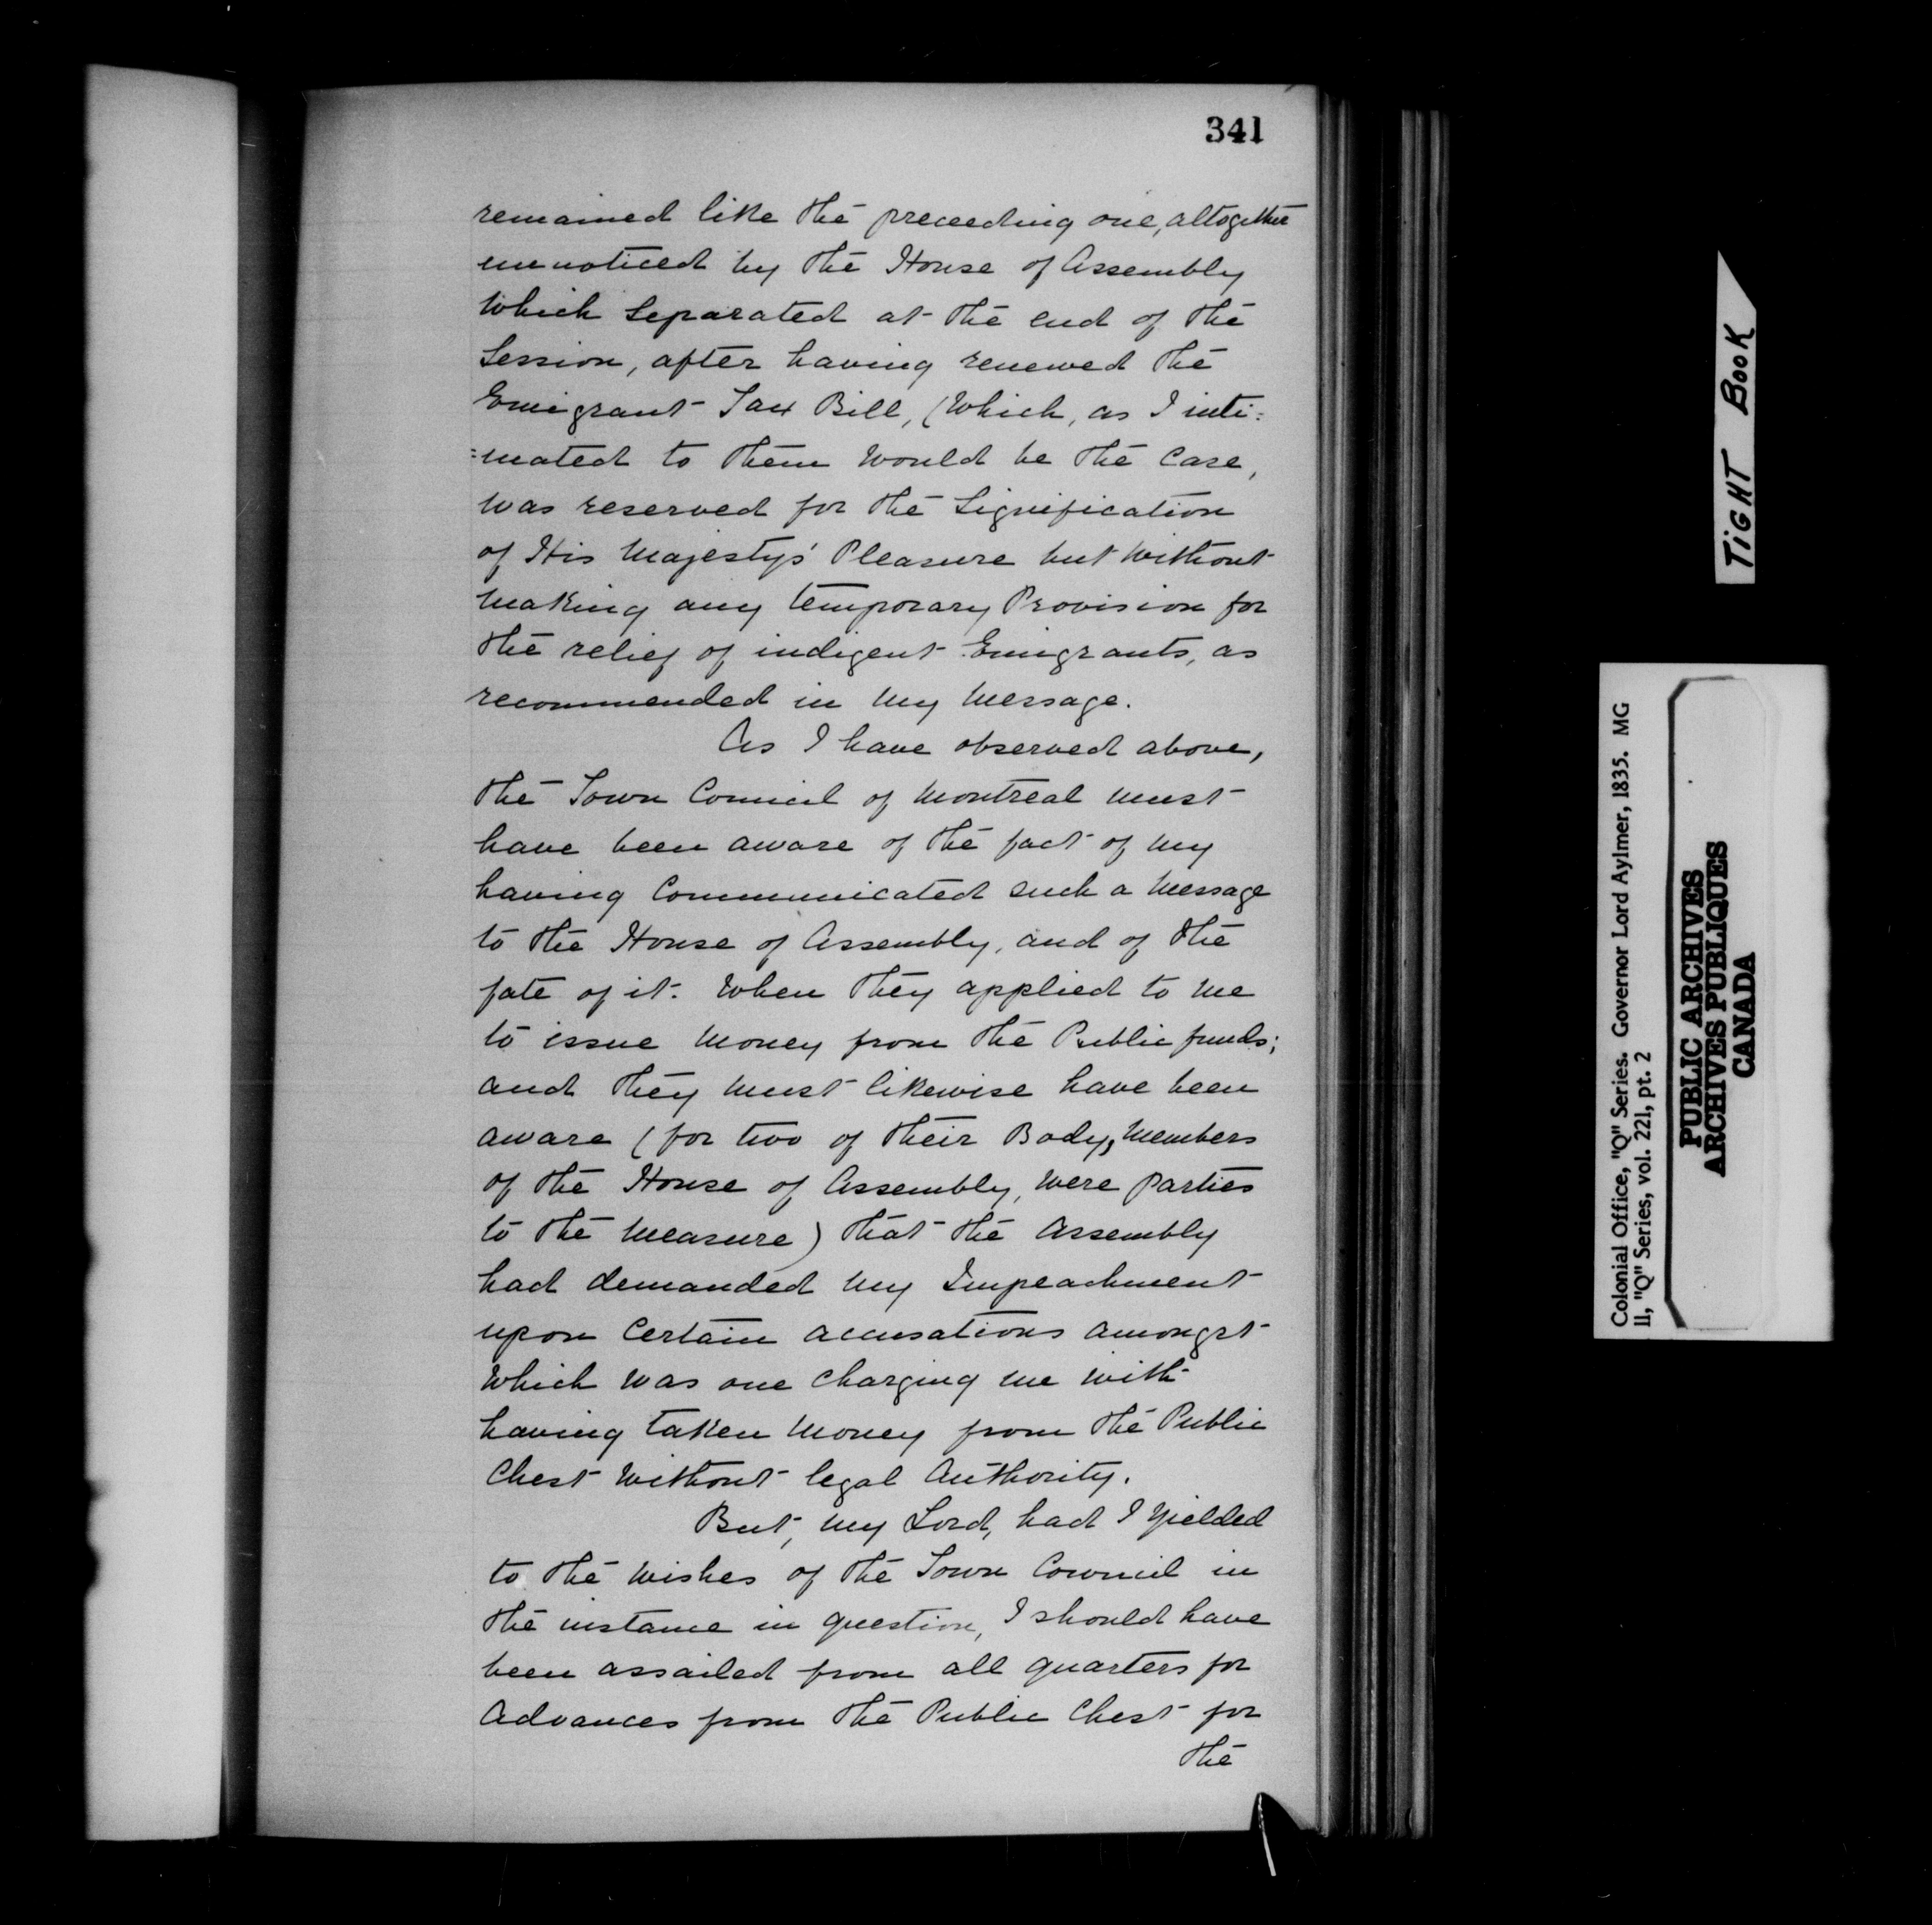 341
remained like the preceeding one, altogether
unnoticed by the House of Assembly
Which Separated at the end of the
Session, after having renewed the
Emigrant Tax Bill, (Which, as I inti=
=mated to them Would be the Case,
was reserved for the Signification
of His Majesty's Pleasure but Without
Making any temporary Provision for
the relief of indigent Emigrants, as
recommended in My Message.
As I have observed above,
the Town Council of Montreal Must
have been aware of the fact of My
having Communicated such a Message
to the House of Assembly, and of the
fate of it. When they applied to Me
to issue Money from the Public funds;
and they Must likewise have been
aware (for two of their Body, Members
of the House of Assembly, Were parties
to the Measure) that the Assembly
had demanded My Impeachment
upon Certain accusations amongst
Which was one Charging Me With
having taken Money from the Public
Chest Without legal Authority.
But, My Lord, had I Yielded
to the Wishes of the Town Council in
the instance in question, I should have
been assailed from all quarters for
Advances from the Public Chest for
the
TIGHT BOOK
Colonial Office, "Q" Series. Governor Lord Aylmer, 1835. MG
11, "Q" Series, vol. 221, pt. 2
PUBLIC ARCHIVES
ARCHIVES PUBLIQUES
CANADA